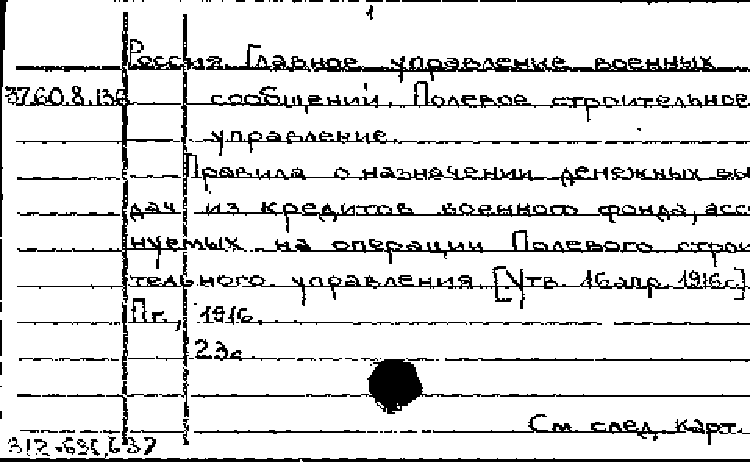 1
Россия. Главное управление военных
37.60.8.138 сообщений. Полевое строительное
управление.
Правила о назначении денежных вы
дач из кредитов военного фонда, асс
нуемых на операции Полевого строи
тельного управления. [Утв. 16 апр. 1916 г.]
Пг., 1916.
23 с.
См. след. карт.